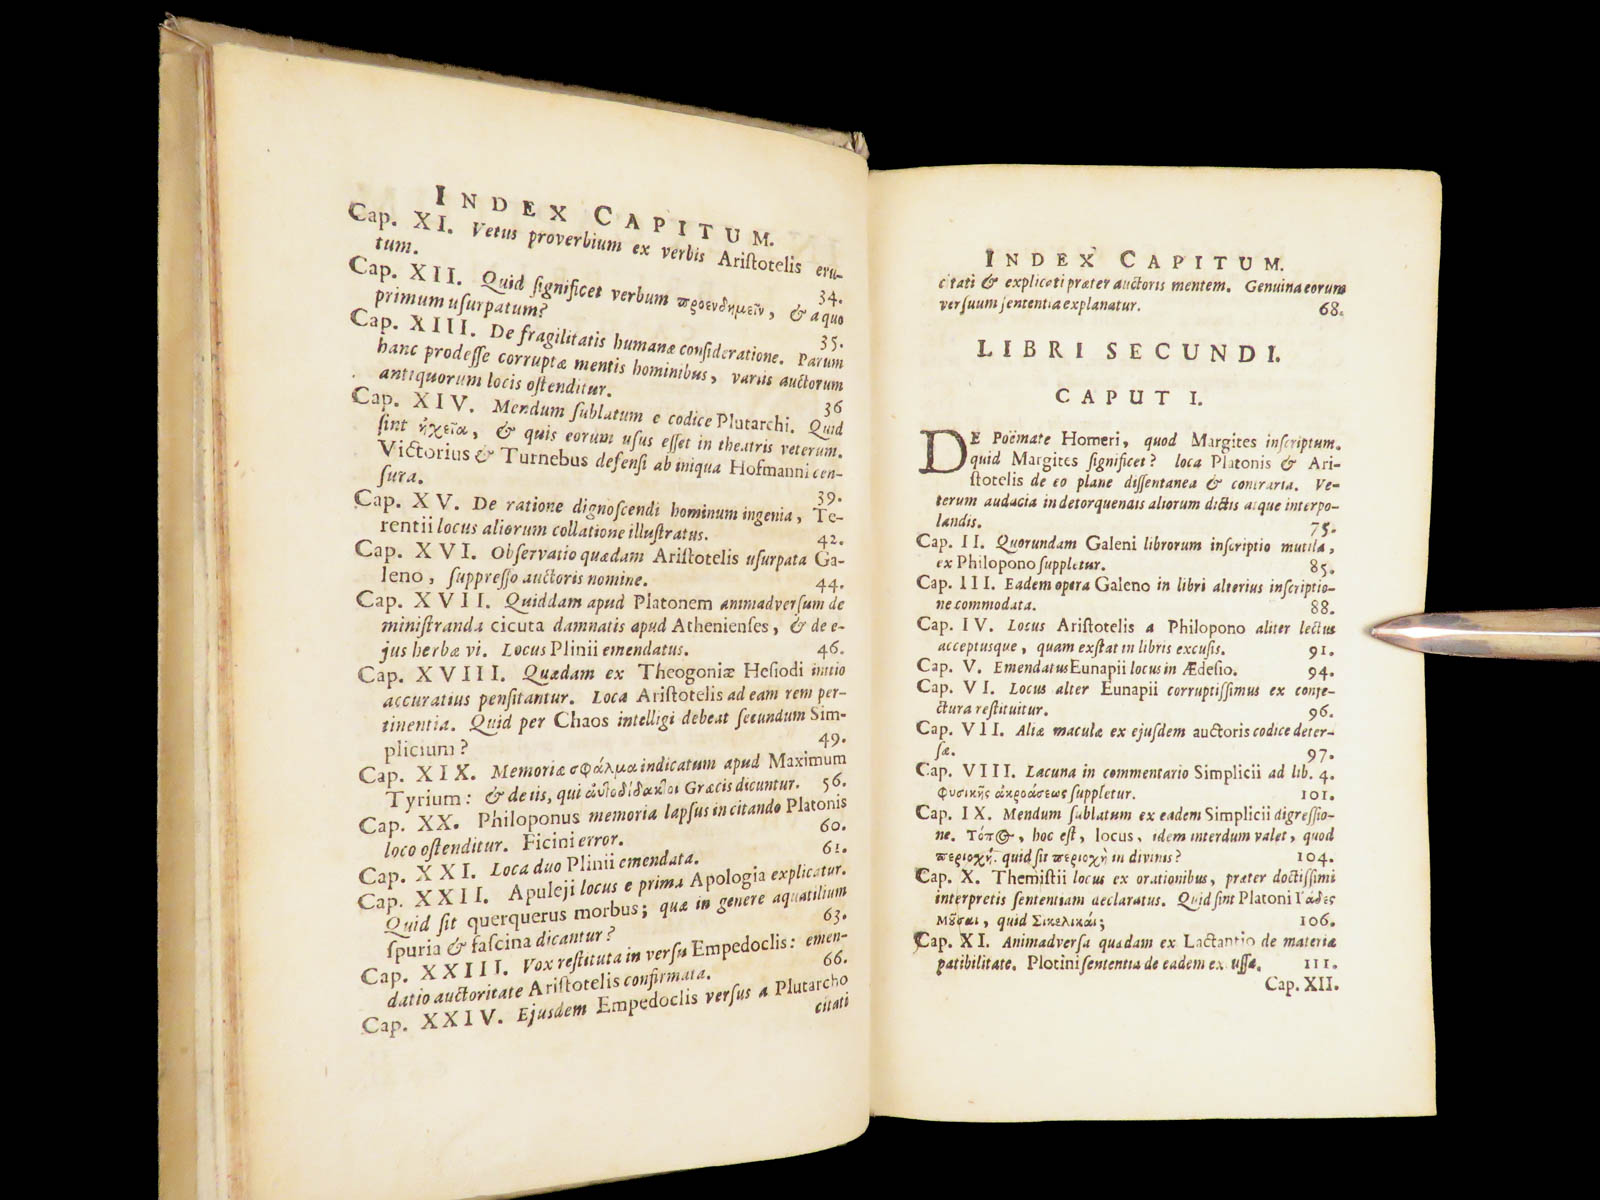 INDEX CAPITUM.
Cap. XI. Vetus proverbium ex verbis Ariſtotelis eru-
tum. 34.
Cap. XII. Quid ſignificet verbum προενδημεῖν, & a quo
primum uſurpatum? 35.
Cap. XIII. De fragilitatis humanæ conſideratione. Parum
hanc prodeſſe corruptæ mentis hominibus, variis auctorum
antiquorum locis oſtenditur. 36
Cap. XIV. Mendum ſublatum e codice Plutarchi. Quid
ſint ἠχεῖα, & quis eorum uſus eſſet in theatris veterum.
Victorius & Turnebus defenſi ab iniqua Hofmanni cen-
ſura. 39.
Cap. XV. De ratione dignoſcendi hominum ingenia, Te-
rentii locus aliorum collatione illuſtratus. 42.
Cap. XVI. Obſervatio quædam Ariſtotelis uſurpata Ga-
leno, ſuppreſſo auctoris nomine. 44.
Cap. XVII. Quiddam apud Platonem animadverſum de
miniſtranda cicuta damnatis apud Athenienſes, & de e-
jus herbæ vi. Locus Plinii emendatus. 46.
Cap. XVIII. Quædam ex Theogoniæ Heſiodi initio
accuratius penſitantur. Loca Ariſtotelis ad eam rem per-
tinentia. Quid per Chaos intelligi debeat ſecundum Sim-
plicium? 49.
Cap. XIX. Memoriæ σφάλμα indicatum apud Maximum
Tyrium: & de iis, qui αὐτοδίδακτοι Græcis dicuntur. 56.
Cap. XX. Philoponus memoria lapſus in citando Platonis
loco oſtenditur. Ficini error. 60.
Cap. XXI. Loca duo Plinii emendata. 61.
Cap. XXII. Apuleji locus e prima Apologia explicatur.
Quid ſit querquerus morbus; quæ in genere aquatilium
ſpuria & faſcina dicantur? 63.
Cap. XXIII. Vox reſtituta in verſu Empedoclis: emen-
datio auctoritate Ariſtotelis confirmata. 66.
Cap. XXIV. Ejusdem Empedoclis verſus a Plutarcho
citati
INDEX CAPITUM.
citati & explicati præter auctoris mentem. Genuina eorum
verſuum ſententia explanatur. 68.
LIBRI SECUNDI.
CAPUT I.
DE Poëmate Homeri, quod Margites inſcriptum.
quid Margites ſignificet? loca Platonis & Ari-
ſtotelis de eo plane diſſentanea & contraria. Ve-
terum audacia in detorquendis aliorum dictis atque interpo-
landis. 75.
Cap. II. Quorundam Galeni librorum inſcriptio mutila,
ex Philopono ſuppletur. 85.
Cap. III. Eadem opera Galeno in libri alterius inſcriptio-
ne commodata. 88.
Cap. IV. Locus Ariſtotelis a Philopono aliter lectus
acceptusque, quam exſtat in libris excuſis. 91.
Cap. V. Emendatus Eunapii locus in Ædeſio. 94.
Cap. VI. Locus alter Eunapii corruptiſſimus ex conje-
ctura reſtituitur. 96.
Cap. VII. Aliæ maculæ ex ejuſdem auctoris codice deter-
ſæ. 97.
Cap. VIII. Lacuna in commentario Simplicii ad lib. 4.
Φυσικῆς ἀκροάσεως ſuppletur. 101.
Cap. IX. Mendum ſublatum ex eadem Simplicii digreſſio-
ne. Τόπος, hoc eſt, locus, idem interdum valet, quod
περιοχή. quid ſit περιοχὴ in divinis? 104.
Cap. X. Themiſtii locus ex orationibus, præter doctiſſimi
interpretis ſententiam declaratus. Quid ſint Platoni Ἰάδες
Μοῦσαι, quid Σικελικάι; 106.
Cap. XI. Animadverſa quædam ex Lactantio de materiæ
patibilitate. Plotini ſententia de eadem excuſſa. 111.
Cap. XII.